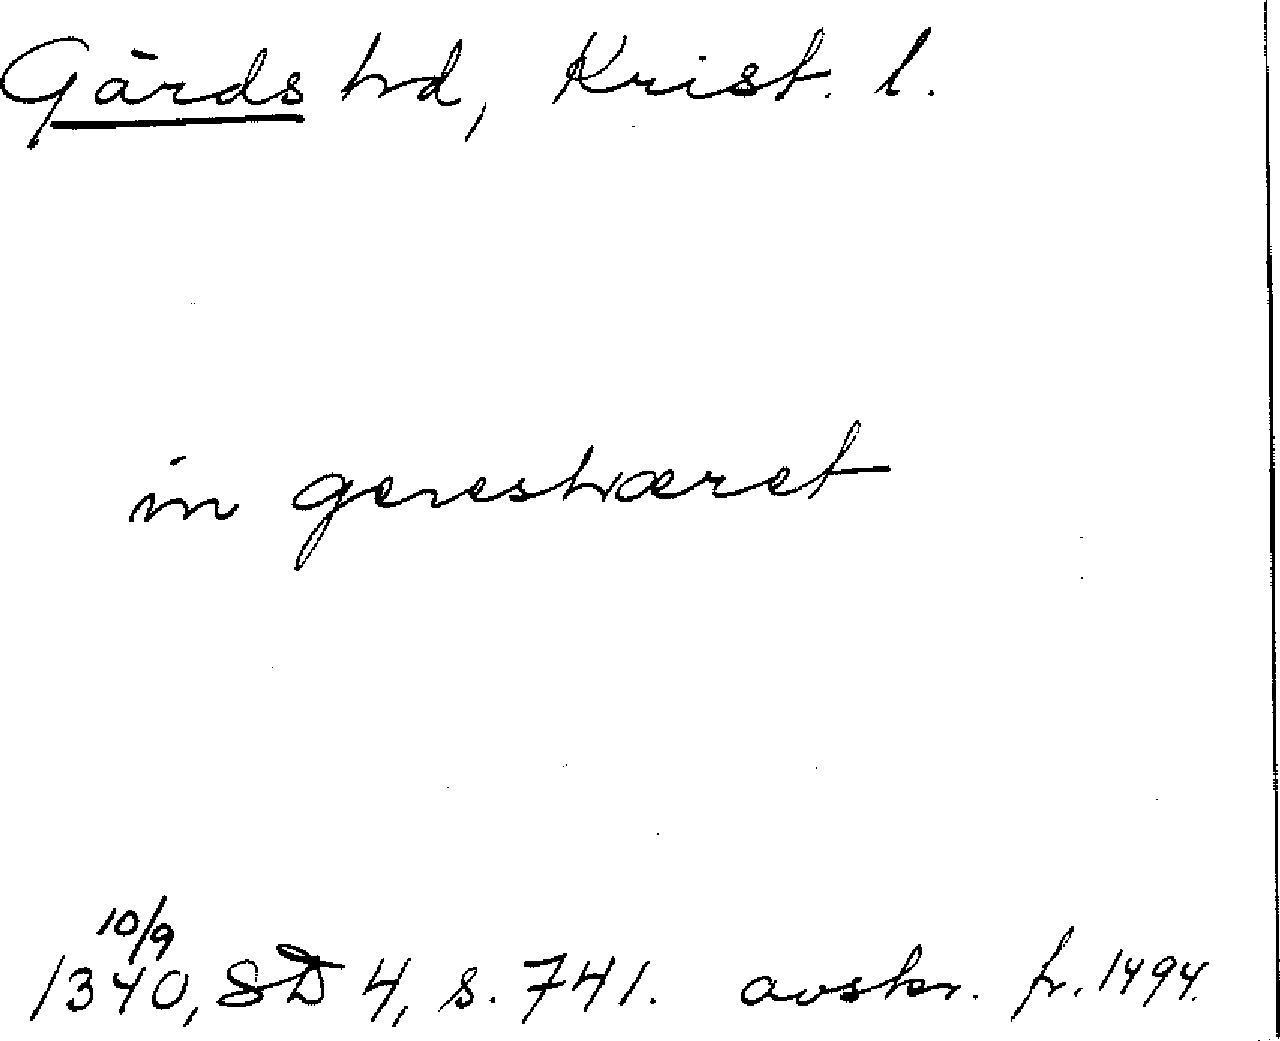 Gärds hd, Krist. l.
in gereshæret
10/9
1340, SD 4, s. 741. avskr. fr. 1494.